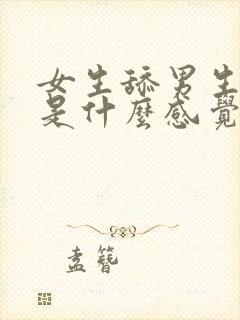 女生舔男生
是什麼感覺
盍簪